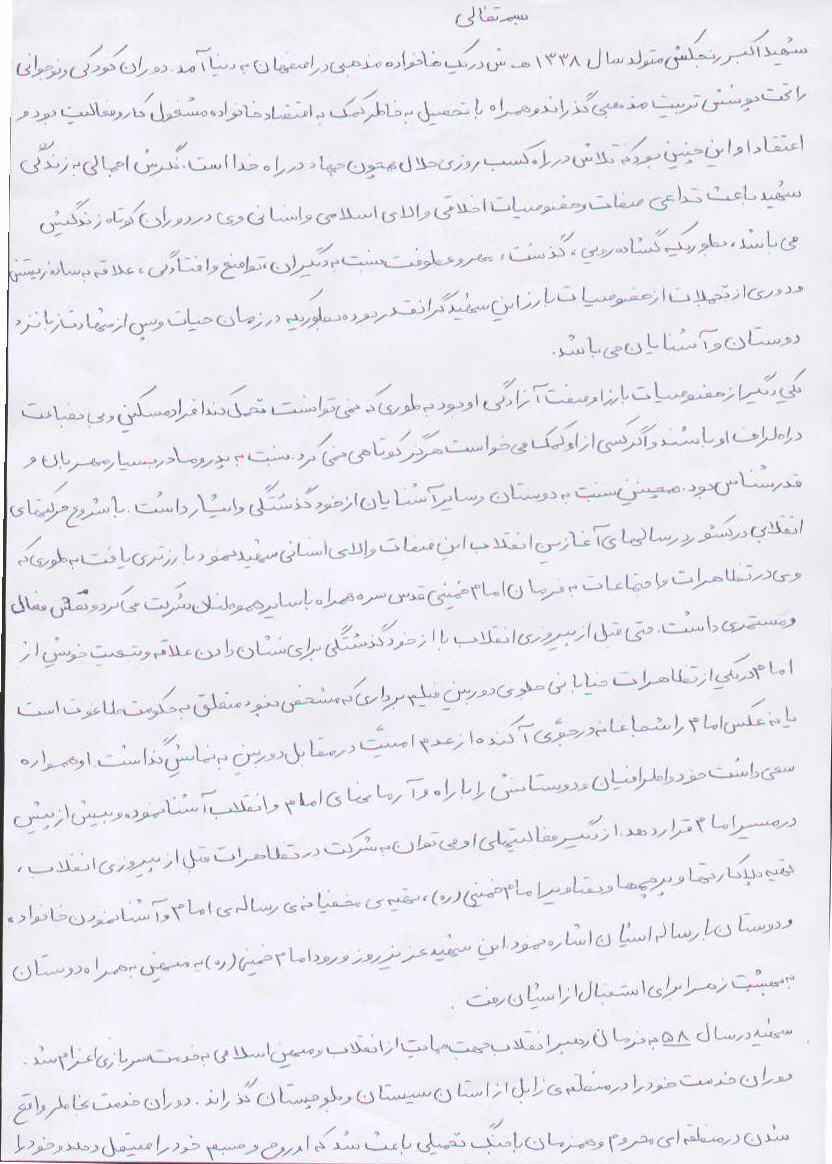 بسمه تعالی
شهید اکبر رنجکش متولد سال ۱۳۳۸ ه.ش در یک خانواده مذهبی در اصفهان به دنیا آمد. دوران کودکی و نوجوانی
را تحت پوشش تربیت مذهبی گذراند و همراه با تحصیل به خاطر کمک به اقتصاد خانواده مشغول کار و فعالیت بود و
اعتقاد او این چنین بود که تلاش در راه کسب روزی حلال همچون جهاد در راه خدا است. نگرش اجمالی به زندگی
شهید باعث تداعی صفات و خصوصیات اخلاقی والای اسلامی و انسانی وی در دوران کوتاه زندگیش
می باشد، بطوریکه گشاده رویی، گذشت، مهر و عطوفت نسبت به دیگران، تواضع و افتادگی، علاقه به ساده زیستی
و دوری از تجملات از خصوصیات بارز این شهید گرانقدر بوده بطوریکه در زمان حیات و پس از شهادت زبانزد
دوستان و آشنایان می باشد.
یکی دیگر از خصوصیات بارز او صفت آزادگی او بود به طوری که نمی توانست تحمل کند افراد مسکین و بی بضاعت
در اطراف او باشند و اگر کسی از او کمک می خواست هرگز کوتاهی نمی کرد. نسبت به پدر و مادر بسیار مهربان و
قدرشناس بود. همچنین نسبت به دوستان و سایر آشنایان از خود گذشتگی و ایثار داشت. با شروع حرکتهای
انقلابی در کشور در سالهای آغازین انقلاب این صفات والای انسانی شهید نمود بارزتری یافت به طوری که
وی در تظاهرات و اجتماعات به فرمان امام خمینی قدس سره همراه با سایر هموطنان شرکت می کرد و نقش فعال
و مستمری داشت. حتی قبل از پیروزی انقلاب با از خود گذشتگی برای نشان دادن علاقه و تبعیت خویش از
امام در یکی از تظاهرات خیابانی جلوی دوربین فیلم برداری که مشخص نبود متعلق به حکومت طاغوت است
یا نه عکس امام را شجاعانه در جوی آکنده از عدم امنیت در مقابل دوربین به نمایش گذاشت. او همواره
سعی داشت خود و اطرافیان و دوستانش را با راه و آرمانهای امام و انقلاب آشنا نموده و بیش از پیش
در مسیر امام قرار دهد. از دیگر فعالیتهای او می توان به شرکت در تظاهرات قبل از پیروزی انقلاب،
تهیه پلاکاردها و پرچمها و تصاویر امام خمینی (ره)، تهیه ی مخفیانه ی رساله ی امام و آشنا نمودن خانواده
و دوستان با رساله ایشان اشاره نمود. این شهید عزیز روز ورود امام خمینی (ره) به میهن به همراه دوستان
به بهشت زهرا برای استقبال از ایشان رفت.
شهید در سال ۵۸ به فرمان رهبر انقلاب جهت حمایت از انقلاب و میهن اسلامی به خدمت سربازی اعزام شد.
دوران خدمت خود را در منطقه ی زابل از استان سیستان و بلوچستان گذراند. دوران خدمت بخاطر واقع
شدن در منطقه ای محروم و همزمان با جنگ تحمیلی باعث شد که او روح و جسم خود را صیقل دهد و خود را